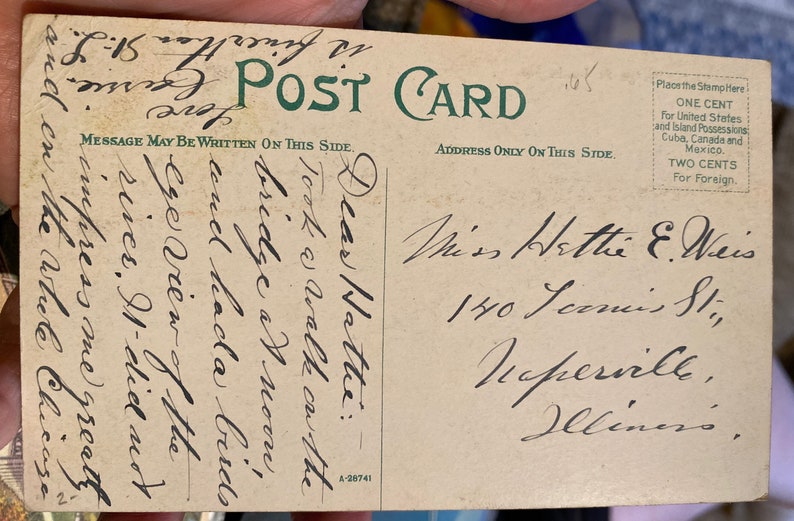 POST CARD
MESSAGE MAY BE WRITTEN ON THIS SIDE.
ADDRESS ONLY ON THIS SIDE.
.65
Place the Stamp Here
ONE CENT
For United States
and Island Possessions
Cuba, Canada and
Mexico.
TWO CENTS
For Foreign.
Dear Hattie:-
Took a walk on the
bridge at noon
and had a birds
eye view of the
river. It did not
impress me greatly
and on the whole Chicago
is finer than St. L.
Love
Miss Hattie E. Weis
140 Loomis St.,
Naperville,
Illinois.
A-28741
2-